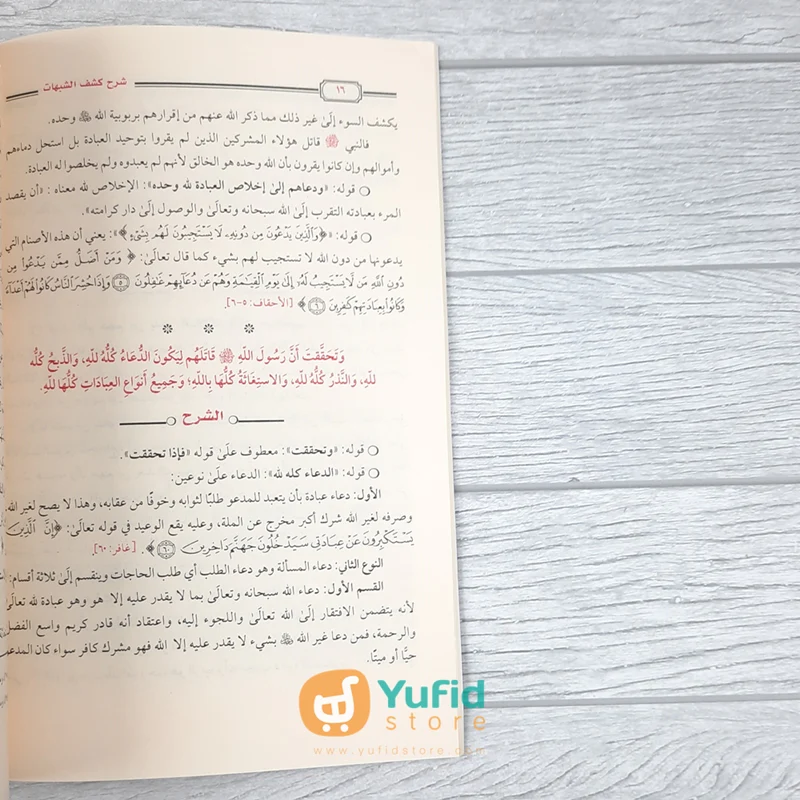 شرح كشف الشبهات
١٦
يكشف السوء إلىٰ غير ذلك مما ذكر الله عنهم من إقرارهم بربوبية الله ﷻ وحده.
فالنبي ﷺ قاتل هؤلاء المشركين الذين لم يقروا بتوحيد العبادة بل استحل دماءهم
وأموالهم وإن كانوا يقرون بأن الله وحده هو الخالق لأنهم لم يعبدوه ولم يخلصوا له العبادة.
○ قوله: «ودعاهم إلىٰ إخلاص العبادة لله وحده»: الإخلاص لله معناه : «أن يقصد
المرء بعبادته التقرب إلىٰ الله سبحانه وتعالىٰ والوصول إلىٰ دار كرامته».
○ قوله: «﴿وَٱلَّذِينَ يَدْعُونَ مِن دُونِهِۦ لَا يَسْتَجِيبُونَ لَهُم بِشَىْءٍ﴾»: يعني أن هذه الأصنام التي
يدعونها من دون الله لا تستجيب لهم بشيء كما قال تعالىٰ: ﴿ وَمَنْ أَضَلُّ مِمَّن يَدْعُوا۟ مِن
دُونِ ٱللَّهِ مَن لَّا يَسْتَجِيبُ لَهُۥٓ إِلَىٰ يَوْمِ ٱلْقِيَـٰمَةِ وَهُمْ عَن دُعَآئِهِمْ غَـٰفِلُونَ ۝٥ وَإِذَا حُشِرَ ٱلنَّاسُ كَانُوا۟ لَهُمْ أَعْدَآءً
وَكَانُوا۟ بِعِبَادَتِهِمْ كَـٰفِرِينَ ۝٦ ﴾ [الأحقاف: ٥-٦].
* * *
وَتَحَقَّقتَ أَنَّ رَسُولَ اللهِ ﷺ قَاتَلَهُم لِيَكُونَ الدُّعَاءُ كُلُّهُ للهِ، وَالذَّبحُ كُلُّهُ
للهِ، وَالنَّذرُ كُلُّهُ للهِ، وَالاستِغَاثَةُ كُلُّهَا بِاللهِ؛ وَجَمِيعُ أَنوَاعِ العِبَادَاتِ كُلُّهَا للهِ.
الشرح
○ قوله: «وتحققت»: معطوف علىٰ قوله «فإذا تحققت».
○ قوله: «الدعاء كله لله»: الدعاء علىٰ نوعين:
الأول: دعاء عبادة بأن يتعبد للمدعو طلبًا لثوابه وخوفًا من عقابه، وهذا لا يصح لغير الله
وصرفه لغير الله شرك أكبر مخرج عن الملة، وعليه يقع الوعيد في قوله تعالىٰ: ﴿إِنَّ ٱلَّذِينَ
يَسْتَكْبِرُونَ عَنْ عِبَادَتِى سَيَدْخُلُونَ جَهَنَّمَ دَاخِرِينَ ۝٦٠﴾. [غافر: ٦٠].
النوع الثاني: دعاء المسألة وهو دعاء الطلب أي طلب الحاجات وينقسم إلىٰ ثلاثة أقسام:
القسم الأول: دعاء الله سبحانه وتعالىٰ بما لا يقدر عليه إلا هو وهو عبادة لله تعالىٰ
لأنه يتضمن الافتقار إلىٰ الله تعالىٰ واللجوء إليه، واعتقاد أنه قادر كريم واسع الفضل
والرحمة، فمن دعا غير الله ﷻ بشيء لا يقدر عليه إلا الله فهو مشرك كافر سواء كان المدعو
حيًّا أو ميتًا.
Yufid
store
www.yufidstore.com